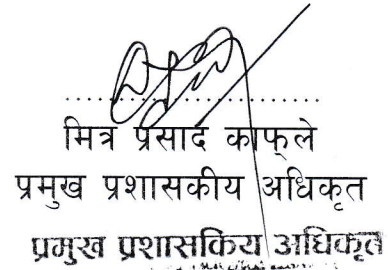 मित्र प्रसाद काफ्ले
प्रमुख प्रशासकीय अधिकृत
प्रमुख प्रशासकिय अधिकृत